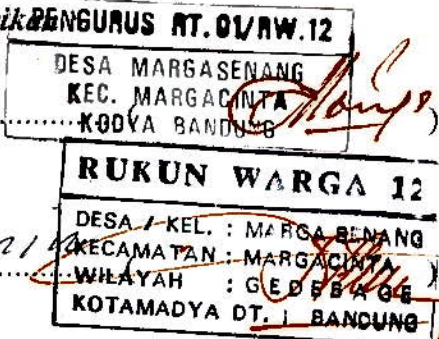 PENGURUS RT.01/RW.12
DESA MARGASENANG
KEC. MARGACINTA
KODYA BANDUNG
RUKUN WARGA 12
DESA / KEL. : MARGA SENANG
KECAMATAN : MARGACINTA
WILAYAH : GEDEBAGE
KOTAMADYA DT. I BANDUNG